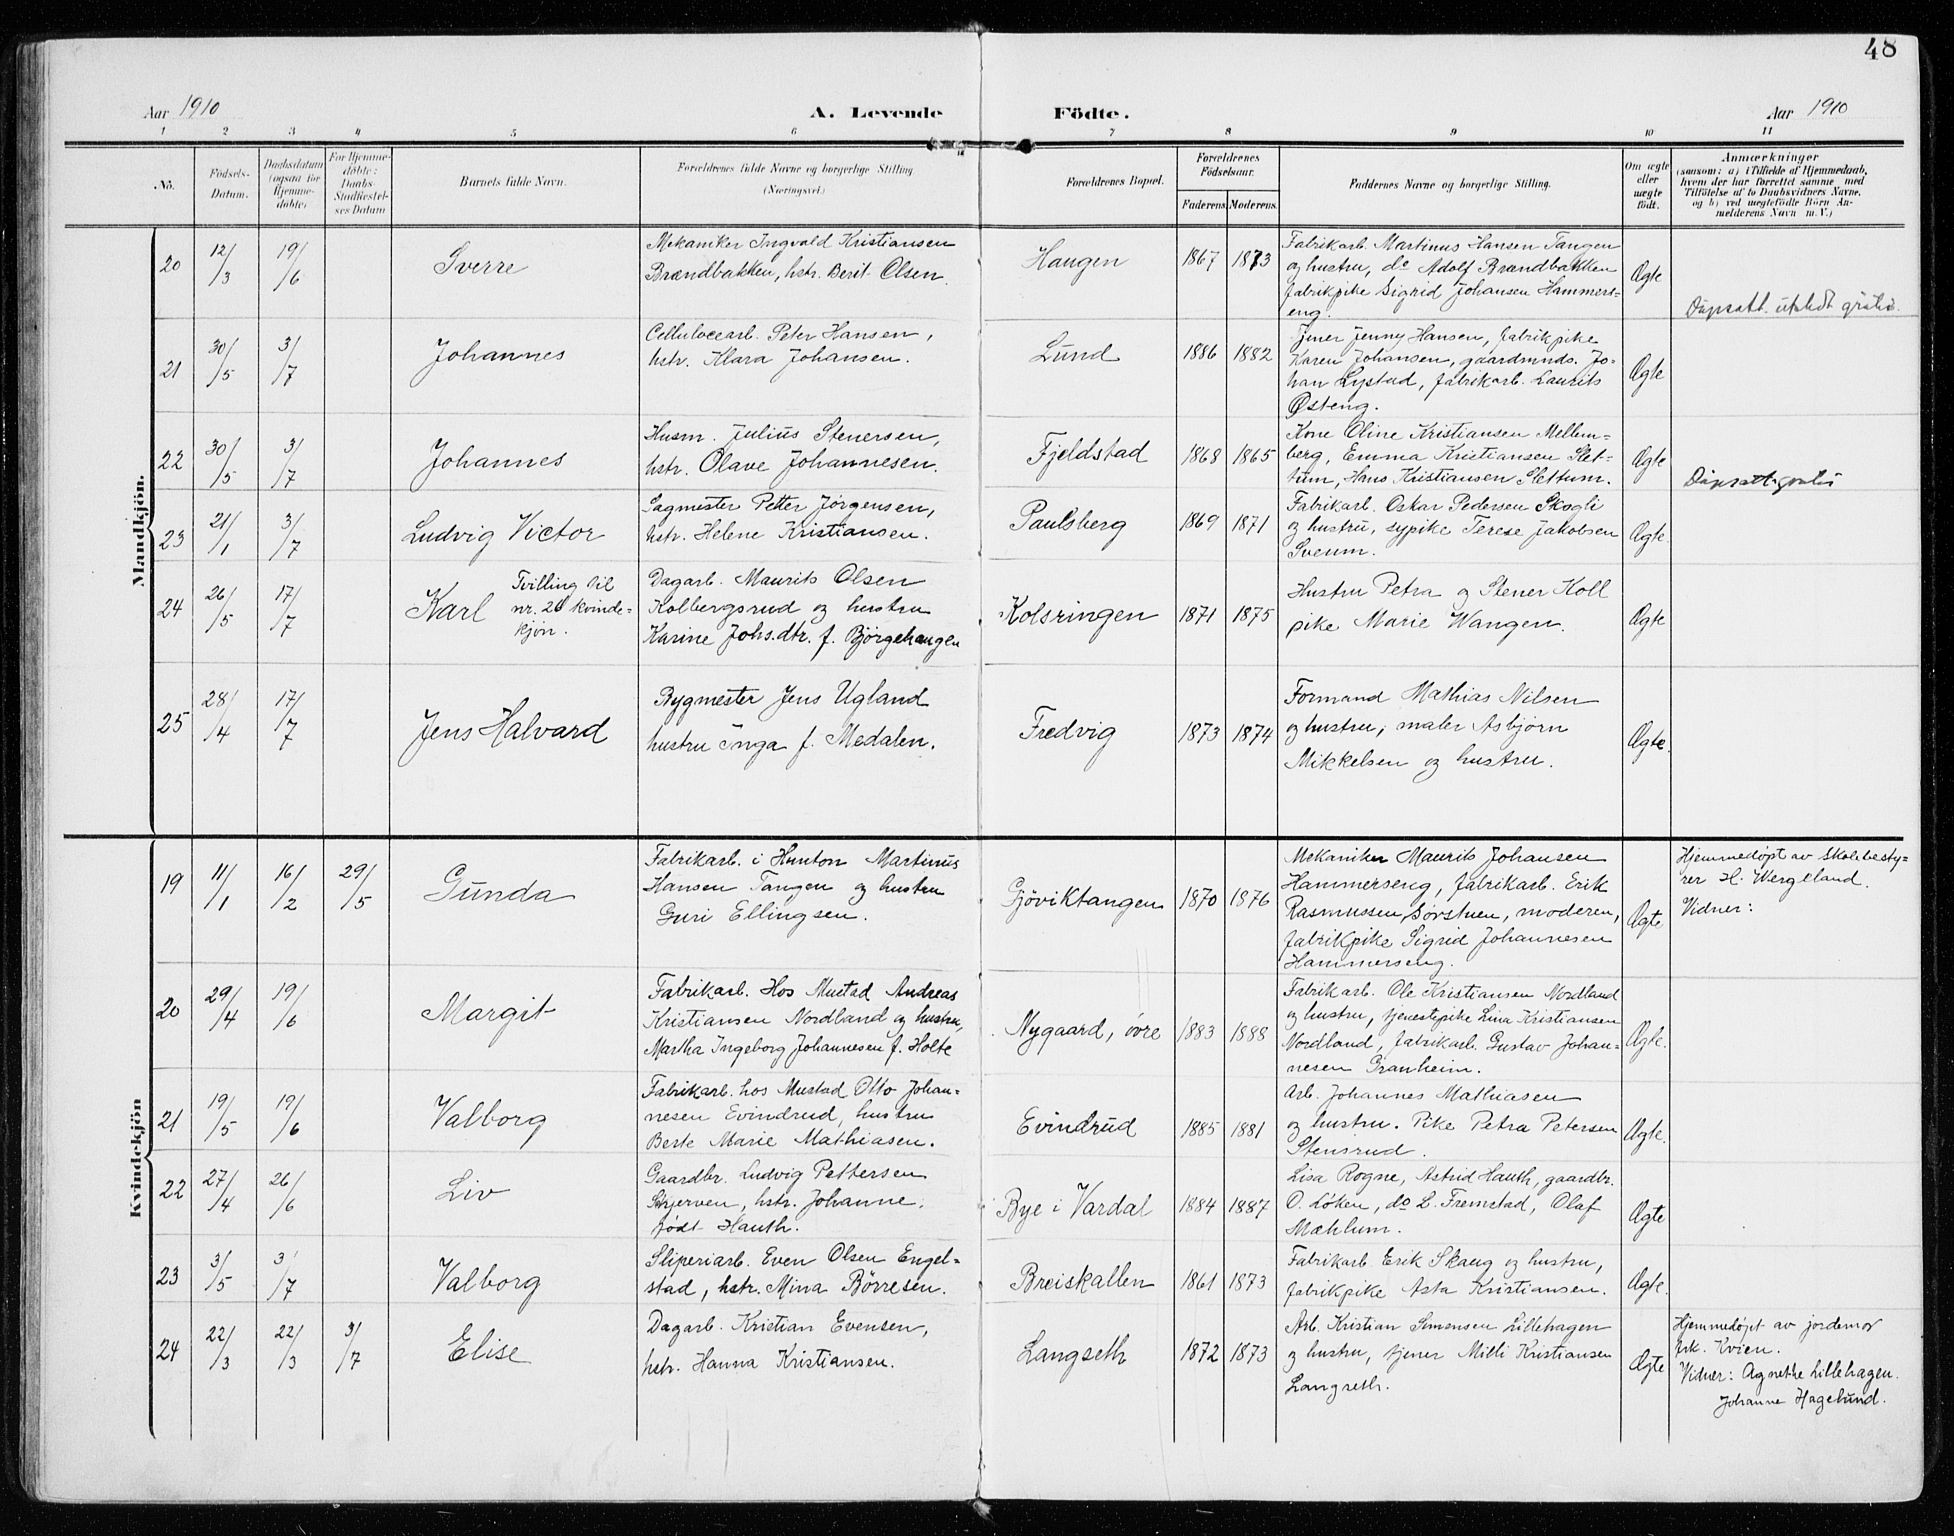 48
Aar 1910 A. Levende Födte. Aar 1910
1 2 3 4 5 6 7 8 9 10 11
No. Födsels-Datum. Daabsdatum (ogsaa for Hjemme-döbte) For Hjemme-döbte: Daabs-Stadfæstel-ses Datum Barnets fulde Navn. Forældrenes fulde Navne og borgerlige Stilling (Næringsvei.) Forældrenes Bopæl. Forældrenes Födselsaar. Faderens Moderens. Faddernes Navne og borgerlige Stilling. Om ægte eller uægte födt. Anmærkninger
(saasom: a) i Tilfælde af Hjemmedaab,
hvem der har forrettet samme med
Tilföielse af to Daabsvidners Navne,
og b) ved uægtefödte Börn An-
melderens Navn m. V.)
Mandkjön.
20 12/3 19/6 Sverre
Mekaniker Ingvald Kristiansen
Brændbakken, hstr. Berit Olsen.
Haugen 1867 1873
Fabrikarb. Martinus Hansen Tangen
og hustru, do Adolf Brændbakken
fabrikpike Sigrid Johansen Hammers-
eng.
Ægte
gratis.
21 30/5 3/7 Johannes
Cellulocearb. Peter Hansen,
hstr. Klara Johansen.
Lund 1886 1882
Tjener Jenny Hansen, fabrikpike
Karen Johansen, gaardmnds. Jo-
han Lystad, fabrikarb. Laurits
Østeng.
Ægte
22 30/5 3/7 Johannes
Husm. Julius Stenersen,
hstr. Olave Johannesen.
Fjeldstad 1868 1865
Kone Oline Kristiansen Mellem-
berg, Emma Kristiansen Slet-
tum, Hans Kristiansen Slettum.
Ægte
Dåpsatt. gratis
23 21/1 3/7 Ludvig Victor
Sagmester Petter Jørgensen,
hstr. Helene Kristiansen.
Paulsberg 1869 1871
Fabrikarb. Oskar Pedersen Skogli
og hustru, sypike Terese Jakobsen
Sveum.
Ægte.
24 26/5 17/7 Karl Tvilling til
nr. 26 kvinde-
kjøn.
Dagarb. Maurits Olsen
Kolbergsrud og hustru
Karine Johs.dtr. f. Bjørgehaugen
Kolsringen 1871 1875
Hustru Petra og Stener Koll
pike Marie Wangen.
Ægte
25 28/4 17/7 Jens Halvard
Bygmester Jens Ugland
hustru Inga f. Medalen.
Fredvig 1873 1874
Formand Mathias Nilsen
og hustru, maler Asbjørn
Mikkelsen og hustru.
Ægte.
Kvindekjön
19 11/1 16/2 29/5 Gunda
Fabrikarb. i Hunton Martinus
Hansen Tangen og hustru
Guri Ellingsen.
Gjöviktangen 1870 1876
Mekaniker Maurits Johansen
Hammerseng, fabrikarb. Erik
Rasmussen Sørstuen, moderen,
fabrikpike Sigrid Johannesen
Hammerseng.
Ægte
Hjemmedøpt av Skolebesty-
rer H. Wergeland.
Vidner:
20 29/4 19/6 Margit
Fabrikarb. Hos Mustad Andreas
Kristiansen Nordland og hustru,
Martha Ingeborg Johannesen f. Holte
Nygaard, øvre 1883 1888
Fabrikarb. Ole Kristiansen Nordland
og hustru, tjenestepike Lina Kristiansen
Nordland, fabrikarb. Gustav Johan-
nesen Granheim.
Ægte.
21 19/5 19/6 Valborg
Fabrikarb. hos Mustad Otto Johan-
nesen Evindrud, hustru
Berte Marie Mathiasen.
Evindrud 1885 1881
Arb. Johannes Mathiasen
og hustru. Pike Petra Petersen
Stensrud.
Ægte.
22 27/4 26/6 Liv
Gaardbr. Ludvig Pettersen
Skjerven, hstr. Johanne,
født Hauth.
Bye i Vardal 1884 1887
Lisa Rogne, Astrid Hauth, gaardbr.
O. Løken, do L. Fremstad, Olaf
Mæhlum.
Ægte
23 3/5 3/7 Valborg
Sliperiarb. Even Olsen Engel-
stad, hstr. Mina Børresen.
Breiskallen 1861 1873
Fabrikarb Erik Skaug og hustru,
fabrikpike Asta Kristiansen.
Ægte.
24 22/3 22/3 3/7 Elise
Dagarb. Kristian Evensen,
hstr. Hanna Kristiansen.
Langseth 1872 1873
Arb. Kristian Simensen Lillehagen
og hustru, tjener Milli Kristiansen
Langseth.
Ægte
Hjemmedøpt av jordemor
frk. Kvien.
Vidner: Agnethe Lillehagen.
Johanne Hagelund.